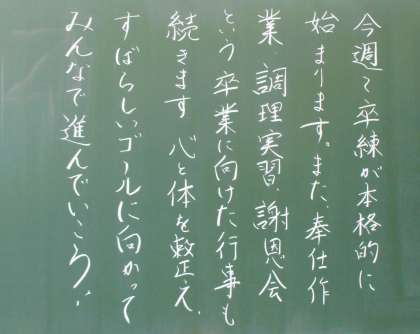 今週で卒練が本格的に
始まります。また、奉仕作
業、調理実習、謝恩会
という卒業に向けた行事も
続きます 心と体を整え、
すばらしいゴールに向かって
みんなで進んでいこう!!